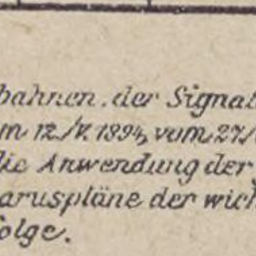 bahnen. der Signal
m 12./V. 1894, vom 27./
die Anwendung der
aruspläne der wich
folge.